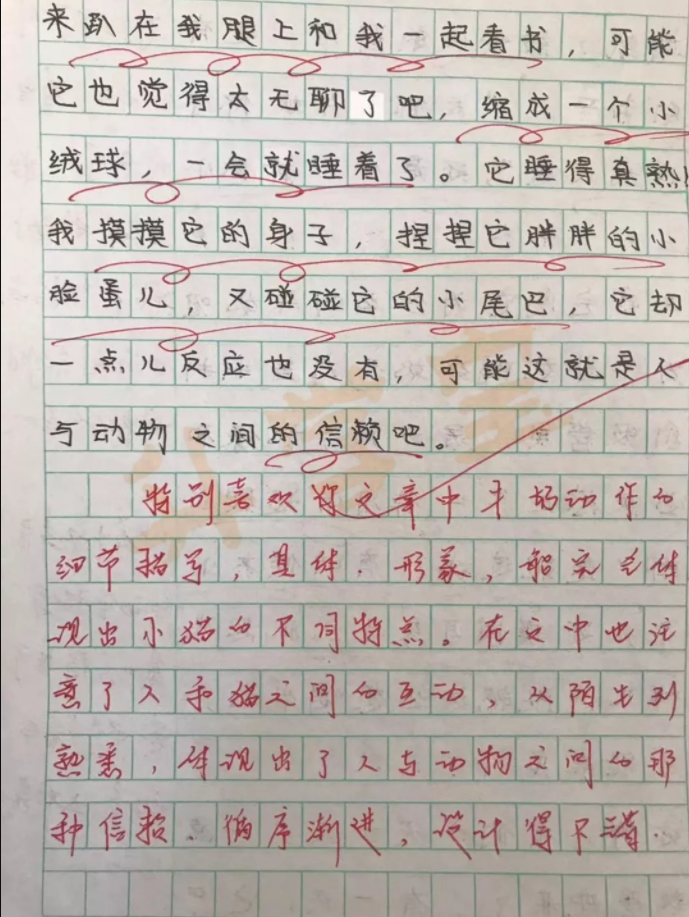 来趴在我腿上和我一起看书，可能
它也觉得太无聊了吧，缩成一个小
绒球，一会就睡着了。它睡得真熟！
我摸摸它的身子，捏捏它胖胖的小
脸蛋儿，又碰碰它的小尾巴，它却
一点儿反应也没有，可能这就是人
与动物之间的信赖吧。
特别喜欢你文章中手的动作的
细节描写，具体、形象，能完
现出小猫的不同特点。在文中也注
意了人和猫之间的互动，从陌生到
熟悉，体现出了人与动物之间的那
种信赖。循序渐进，设计得不错。